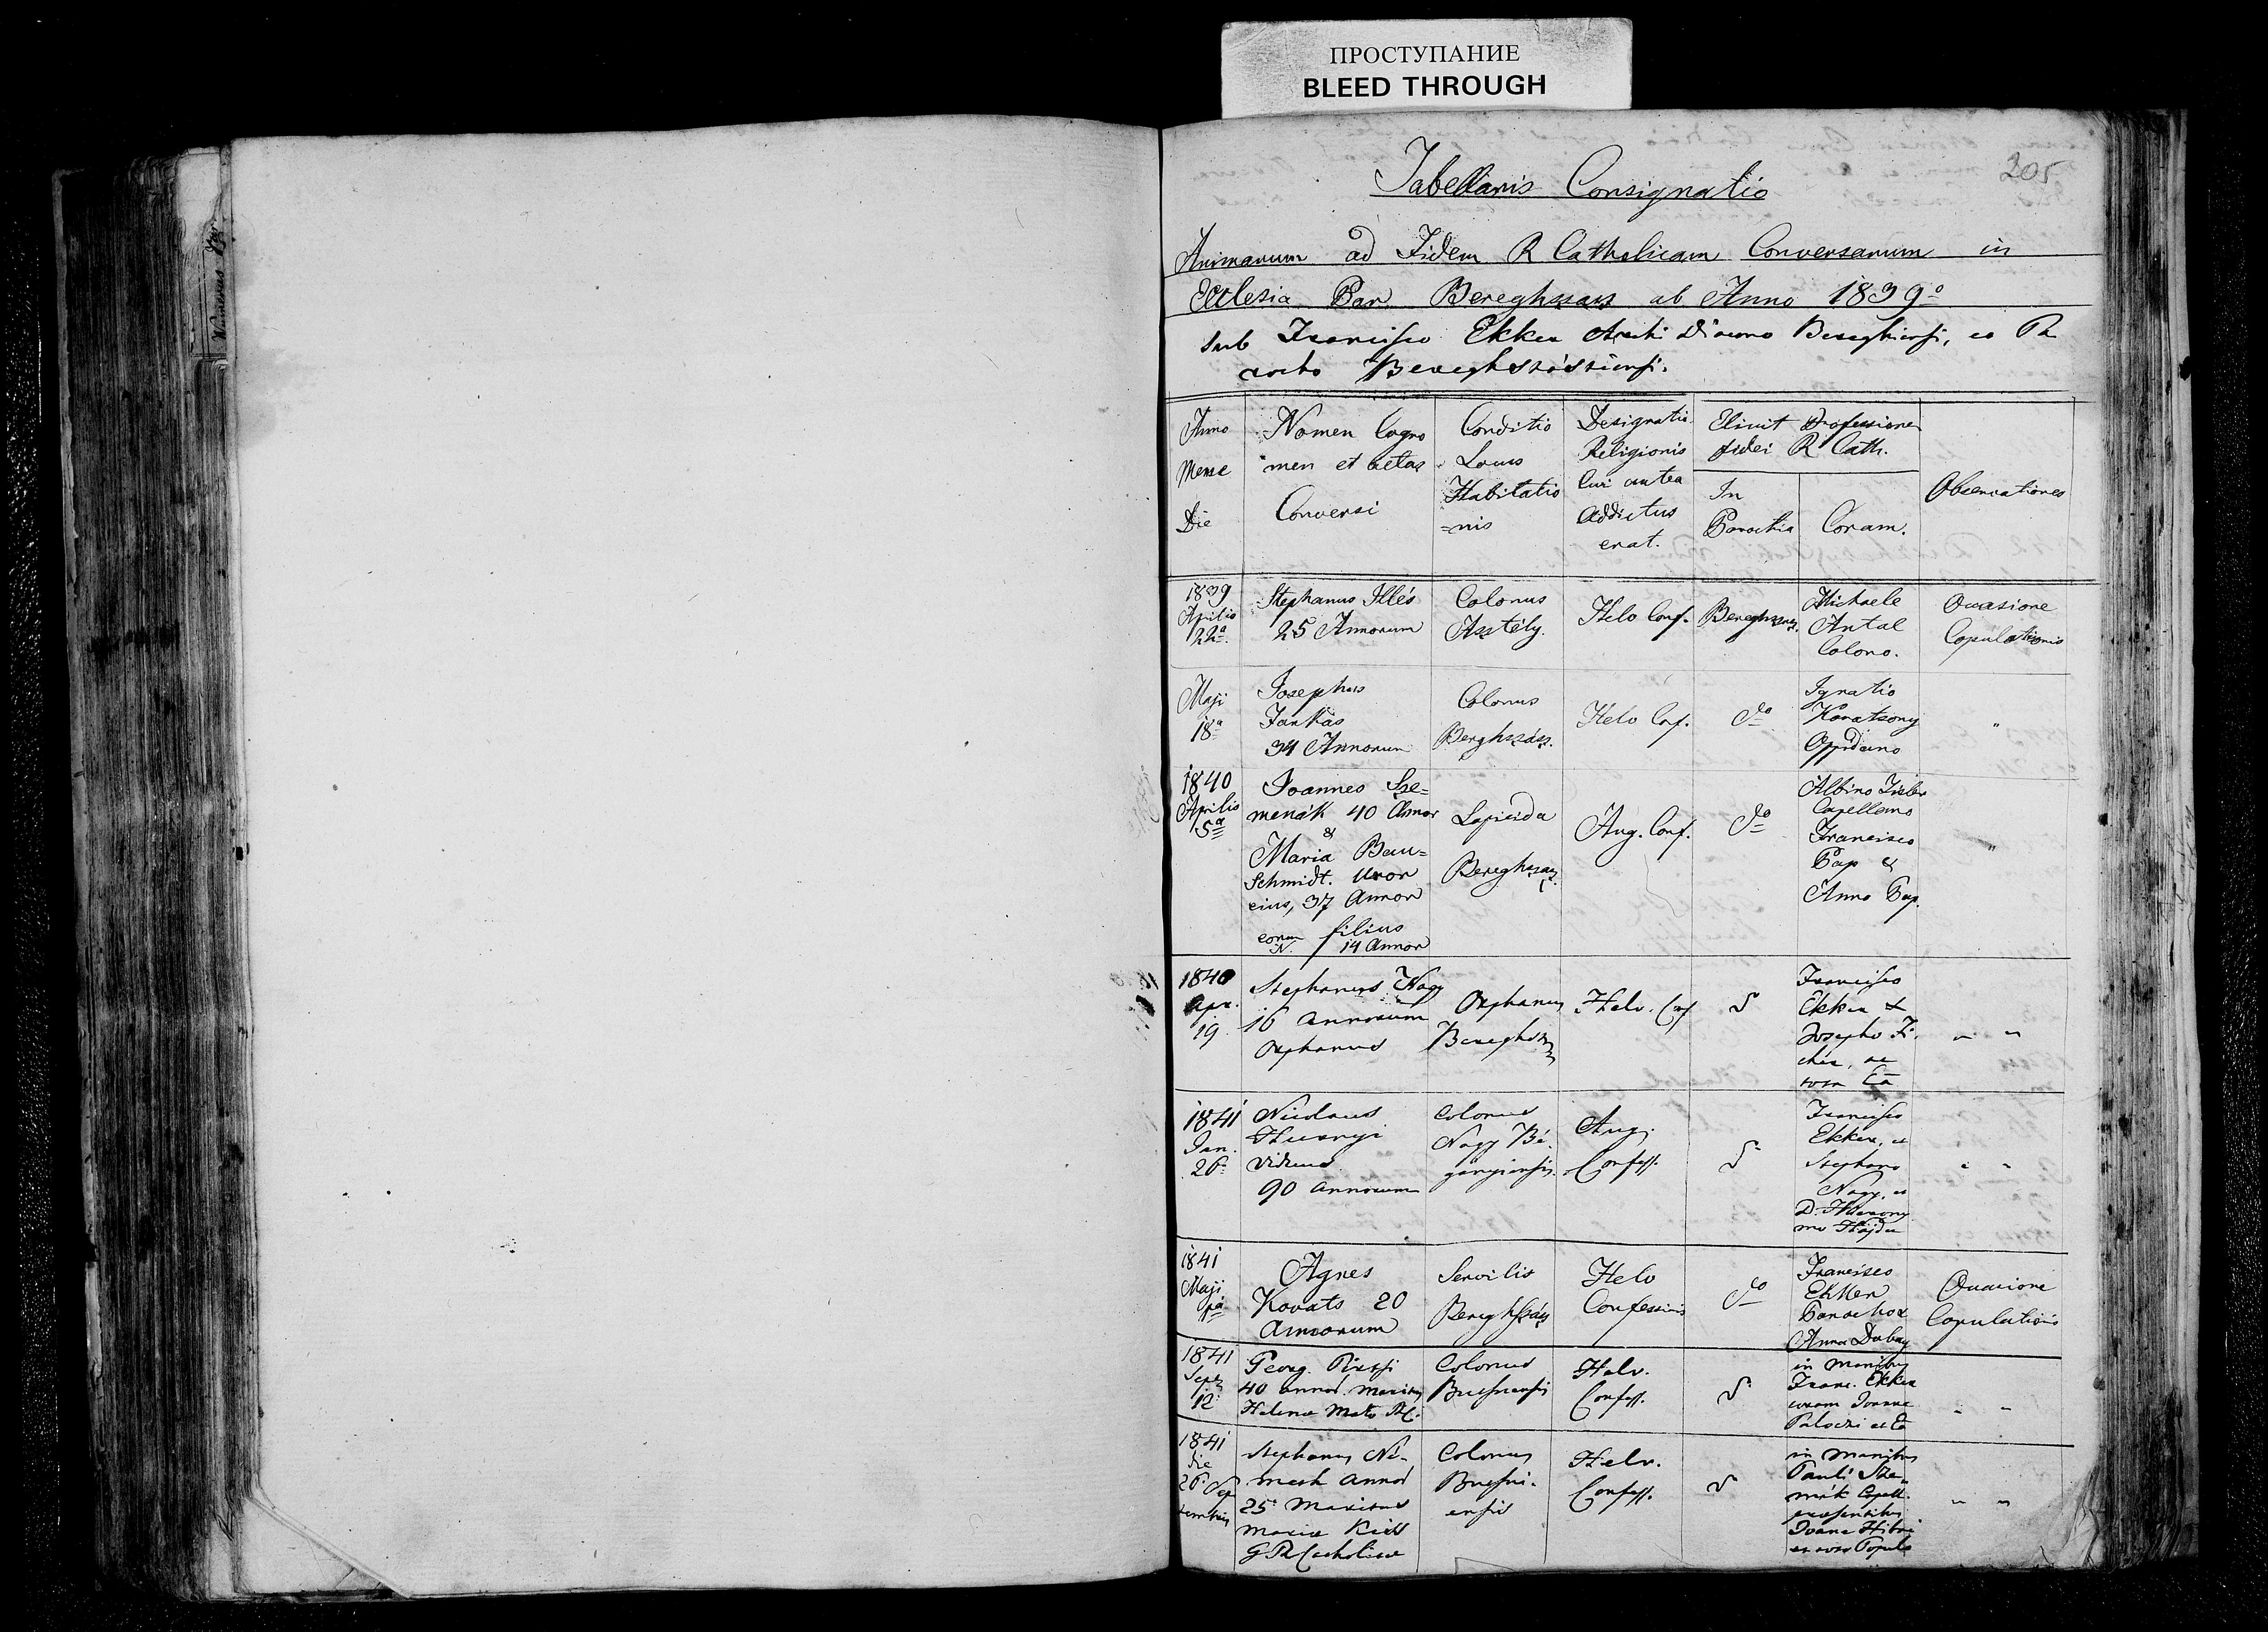 ПРОСТУПАНИЕ
BLEED THROUGH
205
Tabellaris Consignatio
Animarum ad Fidem R Catholicam Conversarum in
Ecclesia Par. Bereghszasz ab Anno 1839o
sub Francisco Ekker Archi Diacono Bereghiensi, et Pa
rocho Bereghszásziensi.
Anno
Mense
Die
Nomen Cogno
men et aetas
Conversi
Conditio
Locus
Habitatio
=nis
Designatio
Religionis
Cui antea
addictus
erat.
Elicuit Professionem
fidei R Cath.
In
Parochia
Coram.
Observationes
1839
Aprilis
22a
Stephanus Illés
25 Annorum
Colonus
Asztély.
Helv Conf.
Bereghszasz.
Michaele
Antal
Colono.
Occasione
Copulationis
Maji
18a
Josephus
Farkas
34 Annorum
Colonus
Berghszász.
Helv Conf.
do
Ignatio
Kovatsony
Oppidano
"
1840
Aprilis
5a
Joannes Sze=
menák 40 Annor
&
Maria Bau=
Schmidt. Uxor
eius, 37 Annor
eorum filius
N. 14 Annor
Lapicida
Bereghszasz
Aug. Conf.
do
Albino
Capellano
Francisco
Pap &
Anna Pap.
"
1840
Apr.
19
Stephanus Nagy
16 annorum
Orphanus
Orphanus
Bereghszasz
Helv. Conf
Francisco
Ekker &
Josepho Fi-
cher, ac
" "
1841
Jan.
26
Nicolaus
viduus
90 annorum
Colonus
Nagy Bé-
gányiensis.
Aug.
Confess.
Francisco
Ekker, et
Stephano
Nagy, et
D. Hierony
mo Hajdu
" "
1841
Maji
Agnes
Kovats 20
Annorum
Servilis
Bereghszász
Helv
Confessionis
do
Francisco
Ekker
Parocho &
Anna
Occasione
Copulationis
1841
Sept
12
Georg.
40 annor. maritus
Helenae
Colonus
Helv.
Confess.
in manibus
Franc. Ekker
coram Joanne
" "
1841
die
26 Sep
tembris
Stephanus Né-
meth annor
25 Maritus
Mariae
G R Catholicae
Colonus
Helv.
Confess.
in manibus
Pauli Sze-
mák Capell.
praesentibus
" "